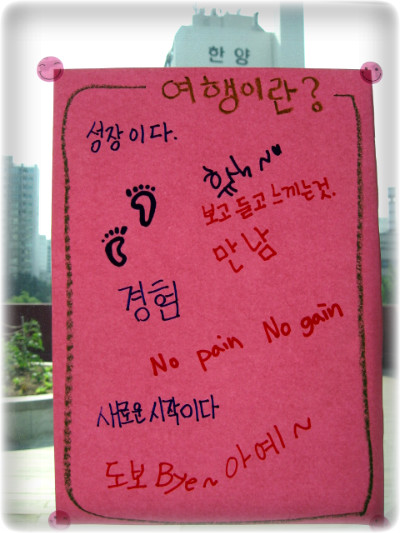 한양
여행이란?
성장이다.
보고 듣고 느끼는것.
만남
경험
No pain No gain
새로운시작이다
도보Bye~아예~